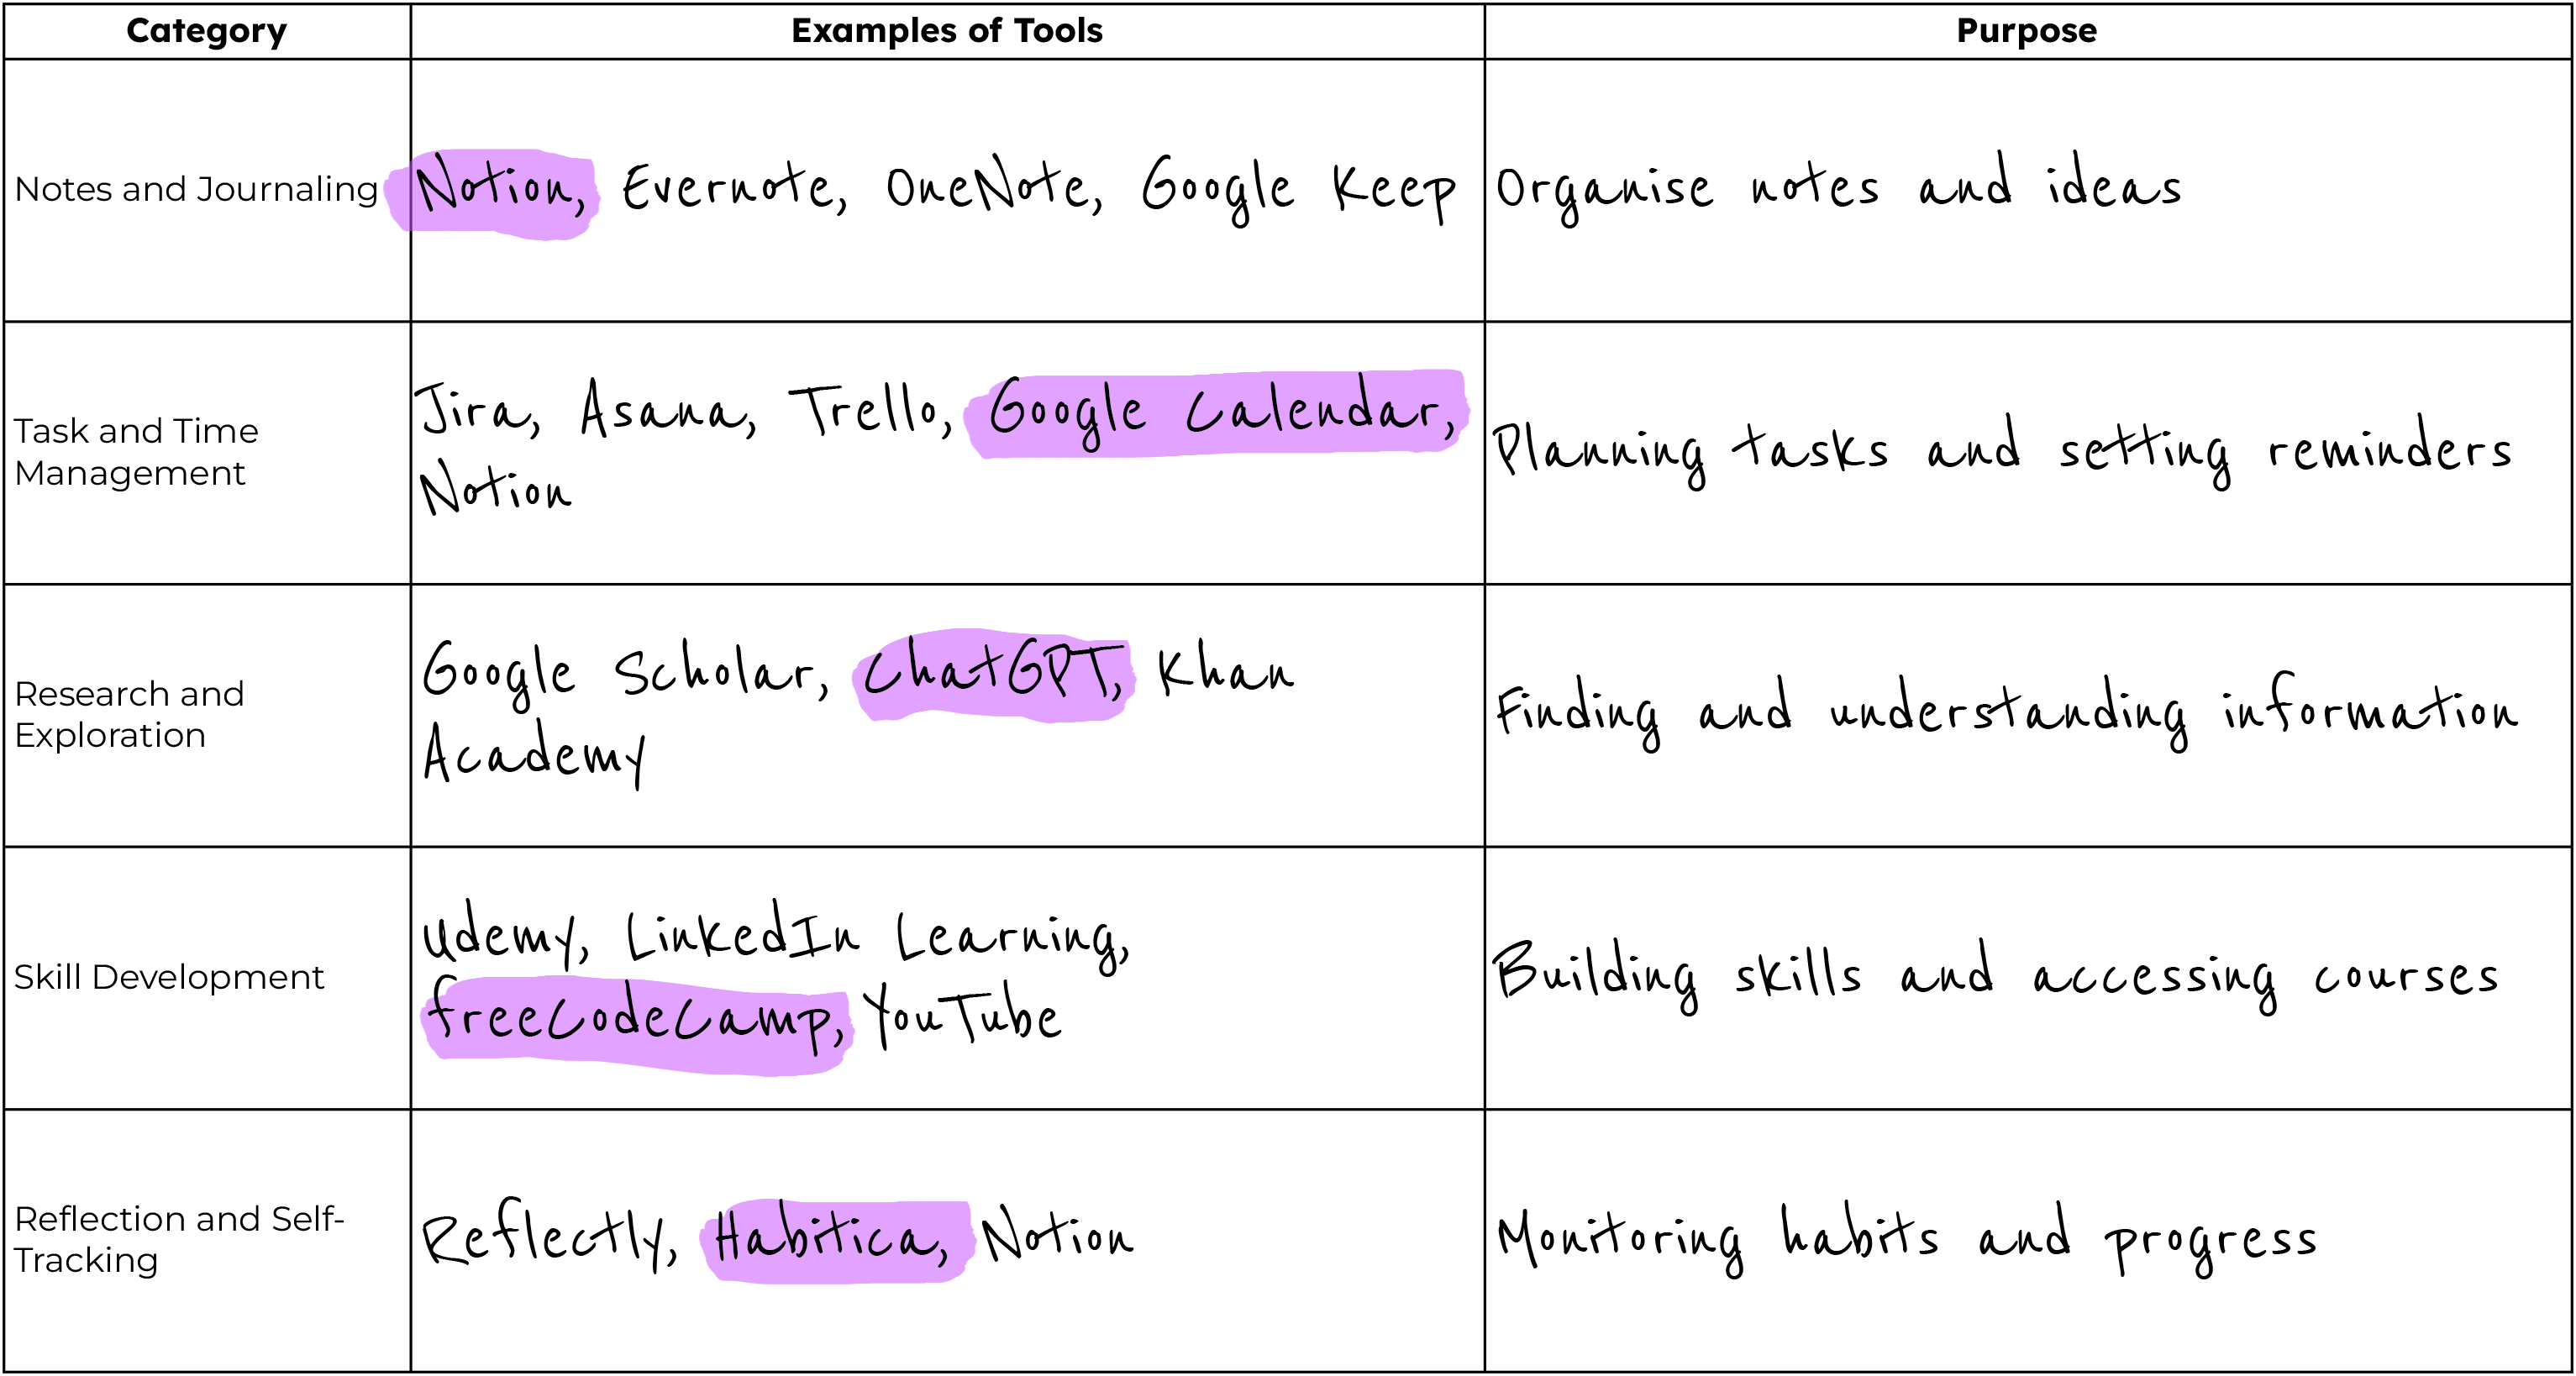 Category Examples of Tools Purpose
Notes and Journaling Notion, Evernote, OneNote, Google Keep Organise notes and ideas
Task and Time
Management
Jira, Asana, Trello, Google Calendar,
Notion
Planning tasks and setting reminders
Research and
Exploration
Google Scholar, ChatGPT, Khan
Academy
Finding and understanding information
Skill Development
Udemy, LinkedIn Learning,
freeCodeCamp, YouTube
Building skills and accessing courses
Reflection and Self-
Tracking
Reflectly, Habitica, Notion
Monitoring habits and progress